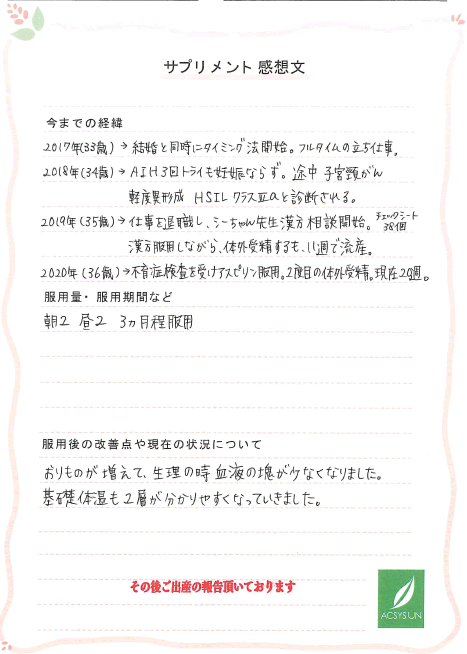 サプリメント 感想文
今までの経緯
2017年(33歳) → 結婚と同時にタイミング法開始。フルタイムの立ち仕事。
2018年(34歳) → AIH3回トライも妊娠ならず。途中 子宮頸がん
軽度異形成 HSIL クラスⅢaと診断される。
2019年(35歳) → 仕事を退職し、シーちゃん先生漢方相談開始。チェックシート38個
漢方服用しながら、体外受精するも、11週で流産。
2020年(36歳) → 不育症検査を受けアスピリン服用。2度目の体外受精。現在20週。
服用量・服用期間など
朝2 昼2 3ヵ月程服用
服用後の改善点や現在の状況について
おりものが増えて、生理の時血液の塊が少なくなりました。
基礎体温も2層が分かりやすくなっていきました。
その後ご出産の報告頂いております
ACSYSUN